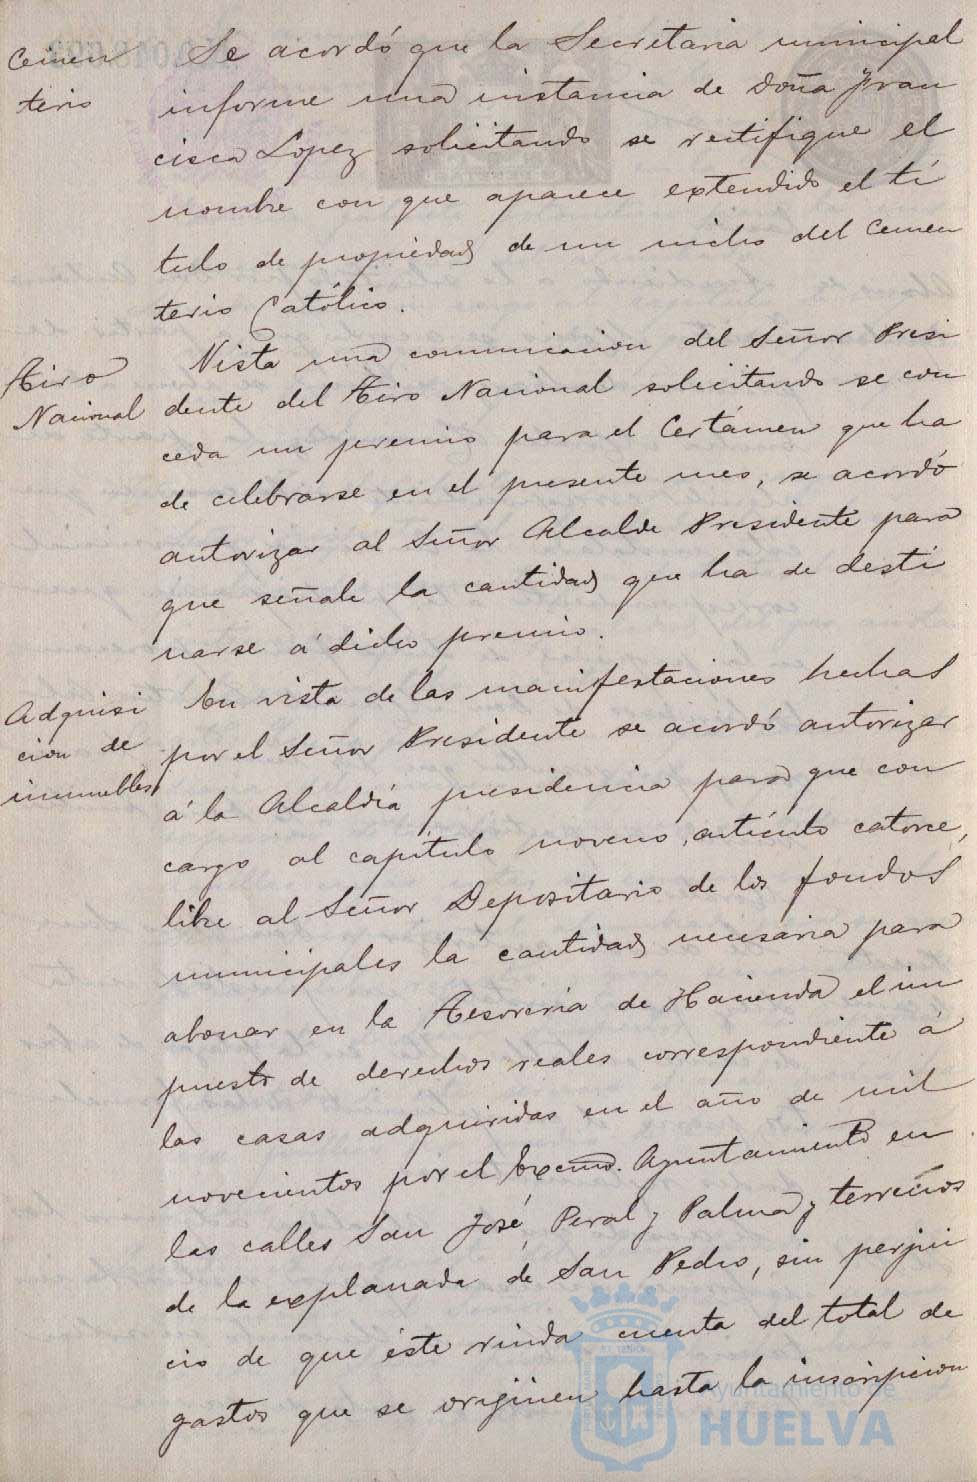 Cemen
terio
Se acordó que la Secretaria municipal
informe una instancia de Doña Fran
cisca Lopez solicitando se rectifique el
nombre con que aparece extendido el tí
tulo de propiedad de un nicho del Cemen
terio Católico.
Tiro
Nacional
Vista una comunicacion del Señor Presi
dente del Tiro Nacional solicitando se con
ceda un premio para el Certámen que ha
de celebrarse en el presente mes, se acordó
autorizar al Señor Alcalde Presidente para
que señale la cantidad que ha de desti
narse á dicho premio.
Adquisi
cion de
inmuebles
En vista de las manifestaciones hechas
por el Señor Presidente se acordó autorizar
á la Alcaldía presidencia para que con
cargo al capítulo noveno, artículo catorce,
libre al Señor Depositario de los fondos
municipales la cantidad necesaria para
abonar en la Tesoreria de Hacienda el im
puesto de derechos reales correspondiente á
las casas adquiridas en el año de mil
novecientos por el Excmo. Ayuntamiento en
las calles San José, Peral y Palma y terrenos
de la explanada de San Pedro, sin perjui
cio de que éste rinda cuenta del total de
gastos que se originen hasta la inscripcion
Ayuntamiento de
HUELVA